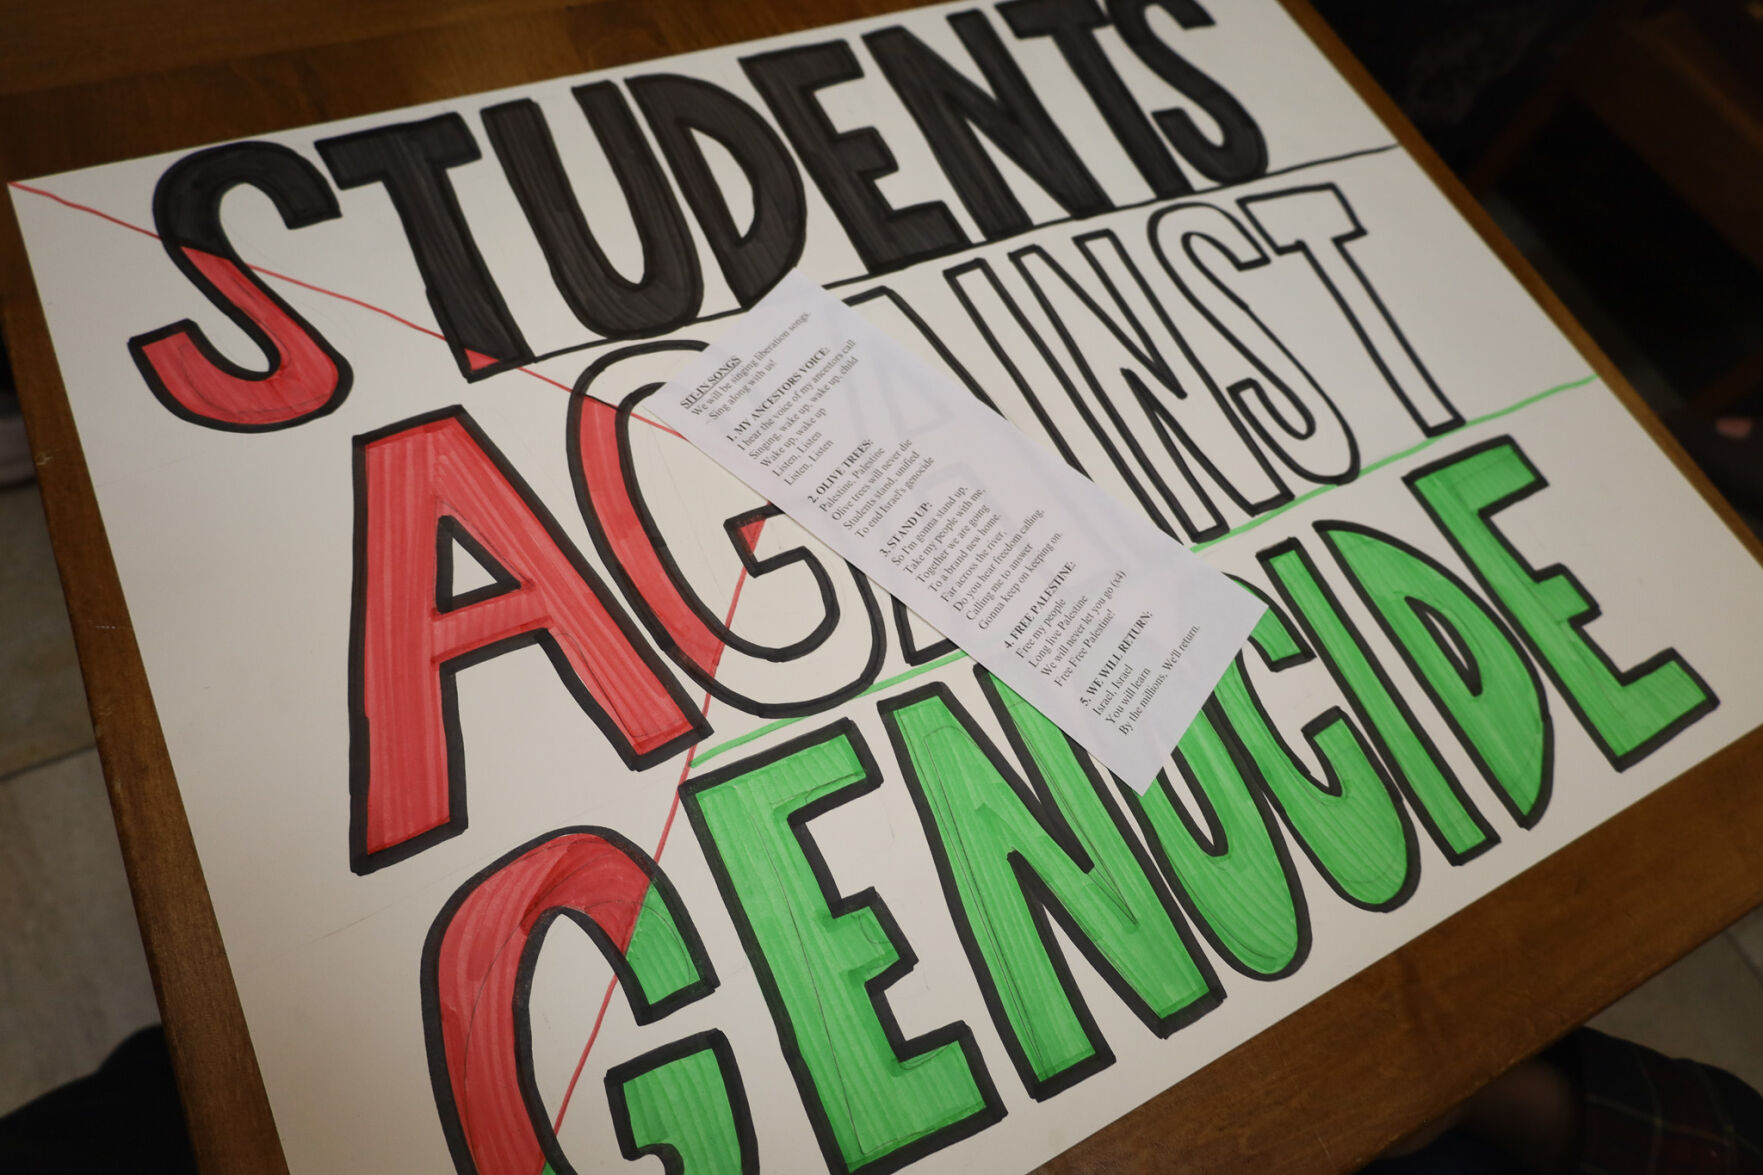 STUDENTS
AGAINST
GENOCIDE
SIT-IN SONGS
We will be singing liberation songs.
Sing along with us!
1. MY ANCESTORS VOICE:
I hear the voice of my ancestors call
Singing, wake up, wake up, child
Wake up, wake up
Listen, Listen
Listen, Listen
2. OLIVE TREES:
Palestine, Palestine
Olive trees will never die
Students stand, unified
To end Israel's genocide
3. STAND UP:
So I'm gonna stand up,
Take my people with me,
Together we are going
To a brand new home.
Far across the river,
Do you hear freedom calling,
Calling me to answer
Gonna keep on keeping on.
4. FREE PALESTINE:
Free my people
Long live Palestine
We will never let you go (x4)
Free Free Palestine!
5. WE WILL RETURN:
Israel, Israel
You will learn
By the millions, We'll return.